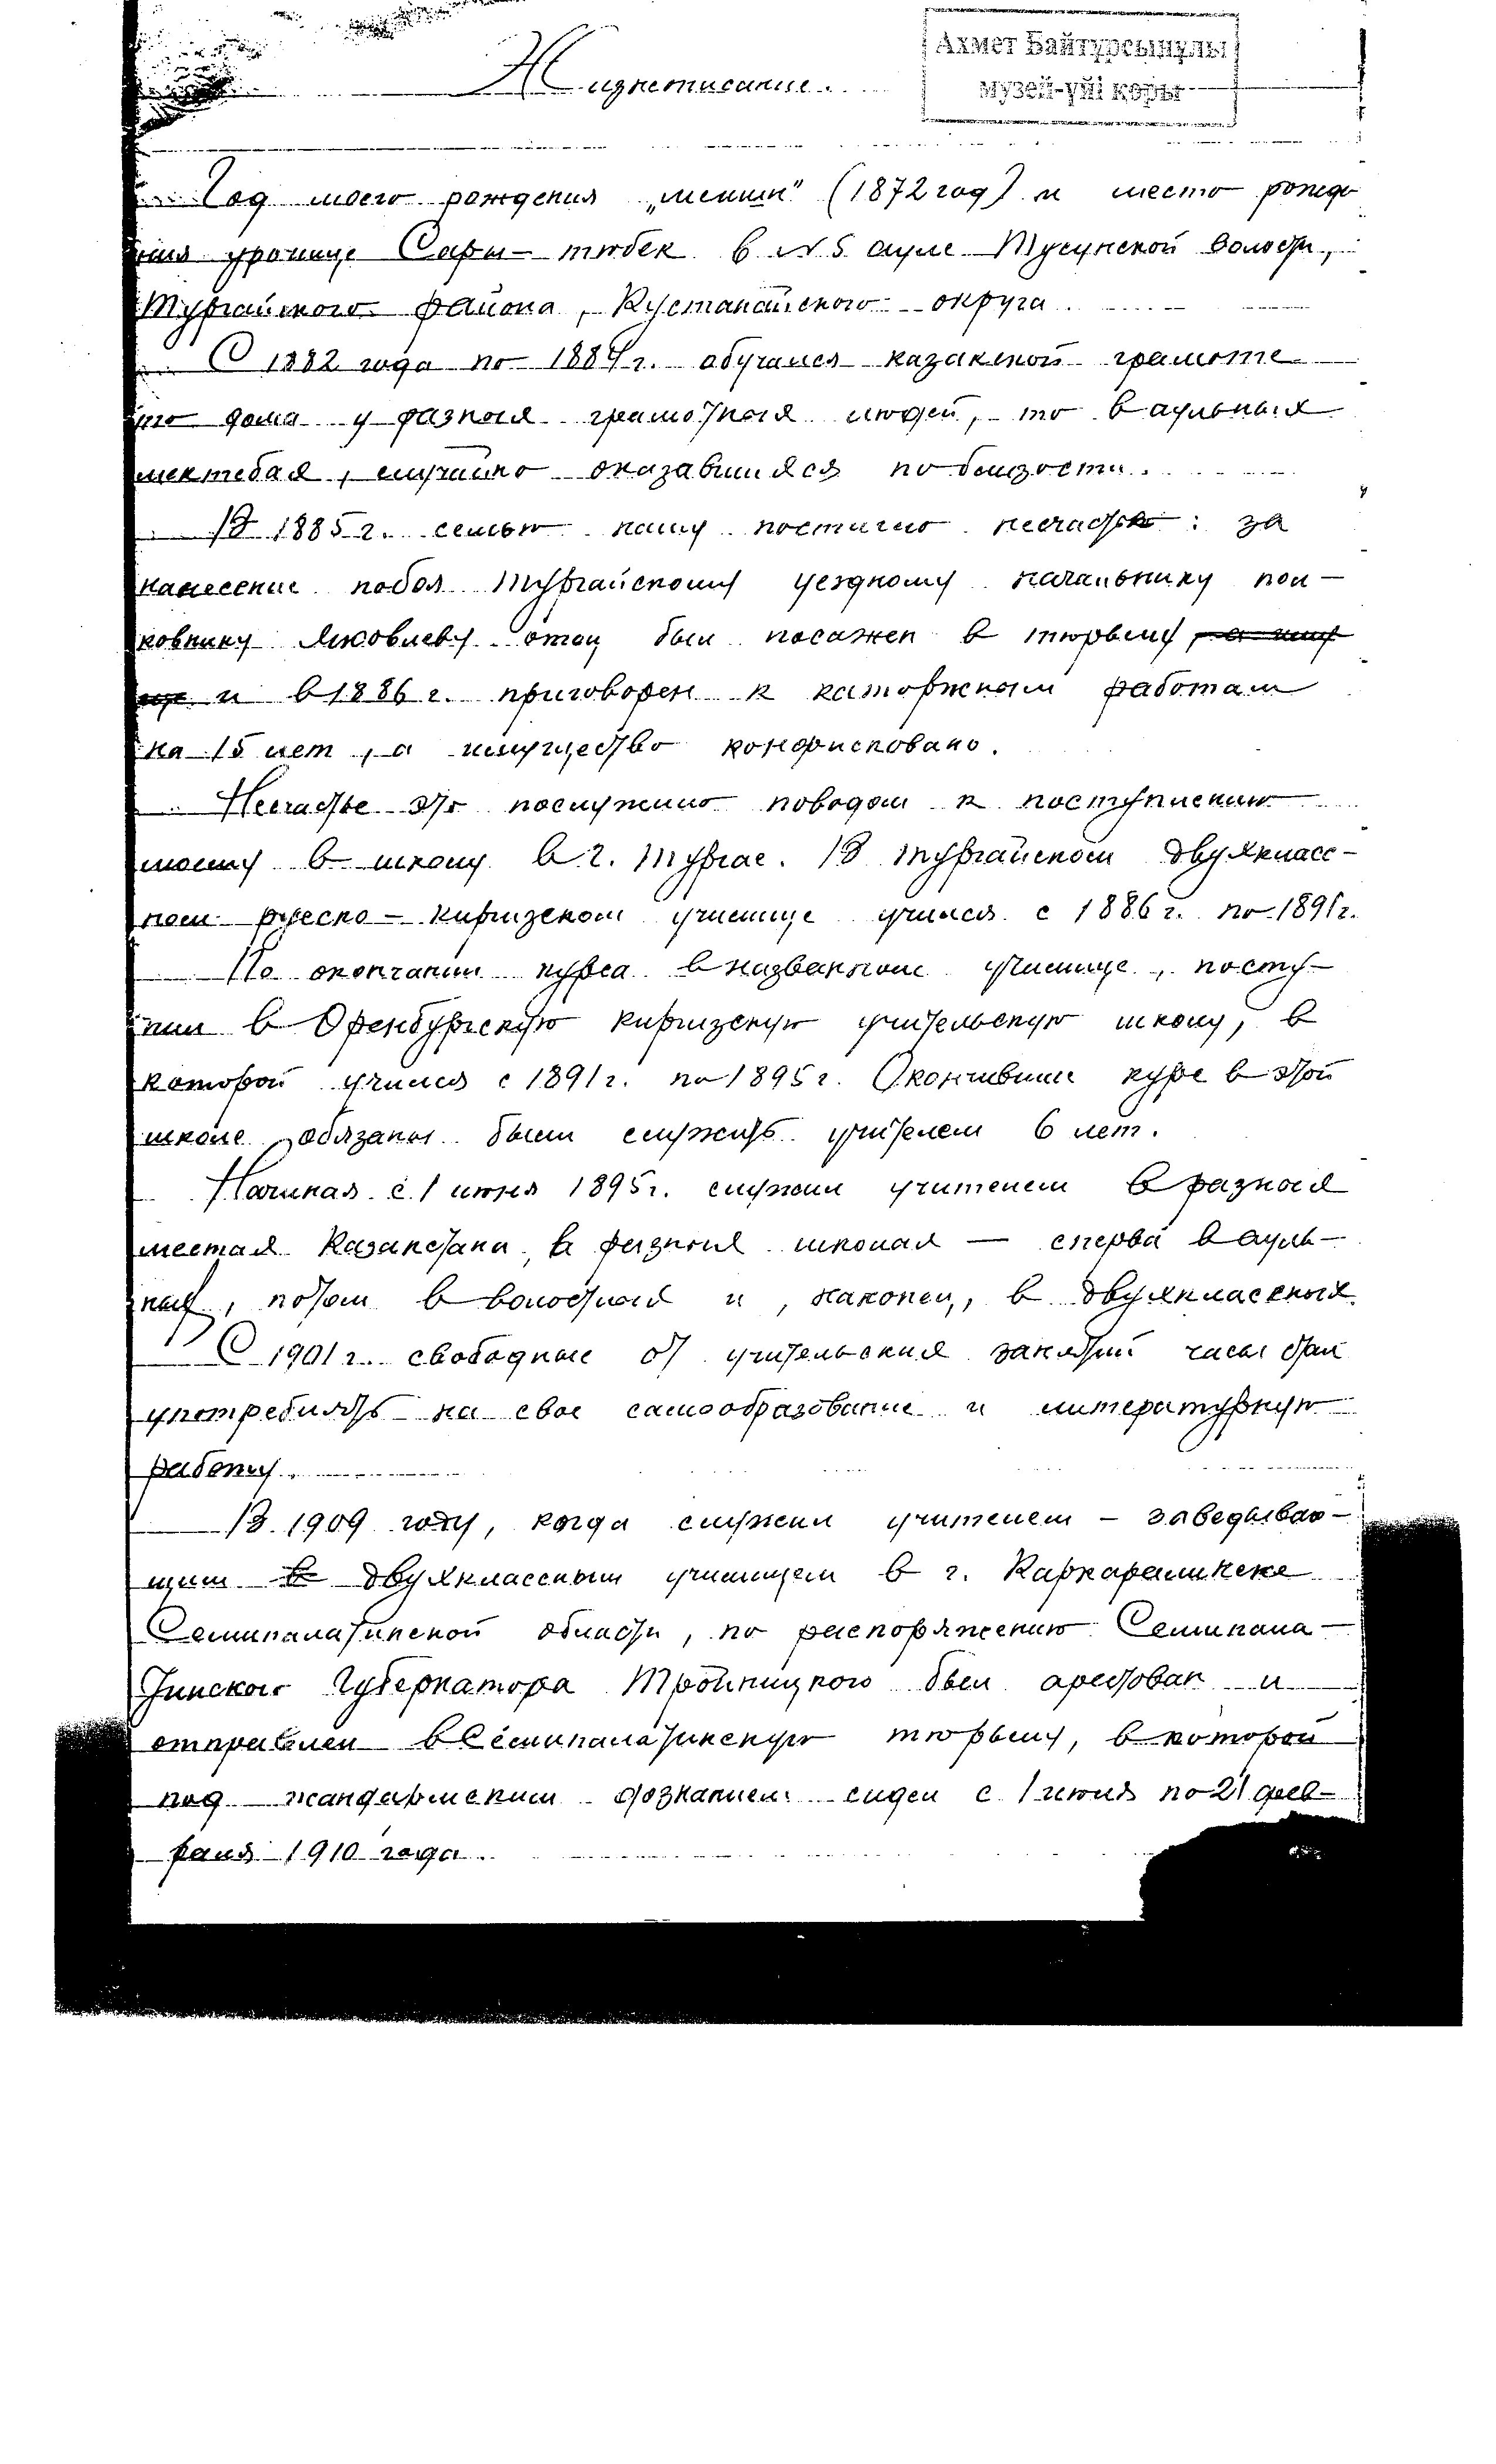 Жизнеописание.
Ахмет Байтұрсынұлы
музей-үйі қоры
Год моего рождения „мешин" (1872 год) и место рожде
ния урочище Сары-тюбек в №5 ауле Тусунской волости,
Тургайского района, Кустанайского округа.
С 1882 года по 1884 г. обучался казакской грамоте
то дома у разных грамотных людей, то в аульных
мектебах, случайно оказавшихся по близости.
В 1885 г. семью нашу постигло несчастье: за
нанесение побоя Тургайскому уездному начальнику пол-
ковнику Яковлеву отец был посажен в тюрьму
и в 1886 г. приговорен к каторжным работам
на 15 лет, а имущество конфисковано.
Несчастье это послужило поводом к поступлению
моему в школу в г. Тургае. В Тургайском двухкласс-
ном русско-киргизском училище учился с 1886 г. по 1891 г.
По окончании курса в названном училище, посту-
пил в Оренбургскую киргизскую учительскую школу, в
которой учился с 1891 г. по 1895 г. Окончившие курс в этой
школе обязаны были служить учителем 6 лет.
Начиная с 1 июня 1895 г. служил учителем в разных
местах Казакстана, в разных школах — сперва в ауль-
ных, потом в волостных и, наконец, в двухклассных.
С 1901 г. свободные от учительских занятий часы стал
употреблять на свое самообразование и литературную
работу.
В 1909 году, когда служил учителем-заведываю-
щим в двухклассным училищем в г. Каркаралинске
Семипалатинской области, по распоряжению Семипала-
тинского Губернатора Тройницкого был арестован и
отправлен в Семипалатинскую тюрьму, в которой
под жандармским дознанием сидел с 1 июля по 21 фев-
раля 1910 года.